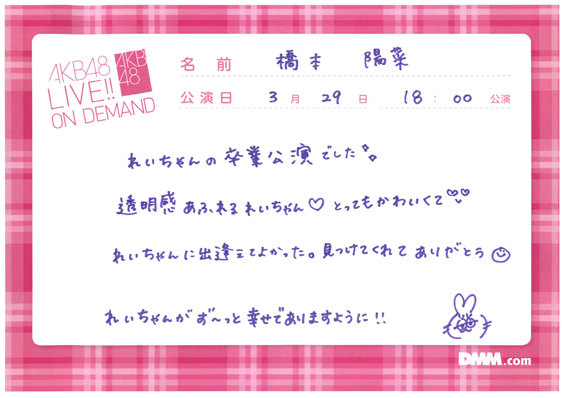 AKB48
LIVE!!
ON DEMAND
AKB
48
名前 橋本 陽菜
公演日 3月 29日 18:00 公演
れいちゃんの卒業公演でした
透明感あふれるれいちゃん♡とってもかわいくて
れいちゃんに出逢えてよかった。見つけてくれてありがとう
れいちゃんがず〜っと幸せでありますように!!
DMM.com